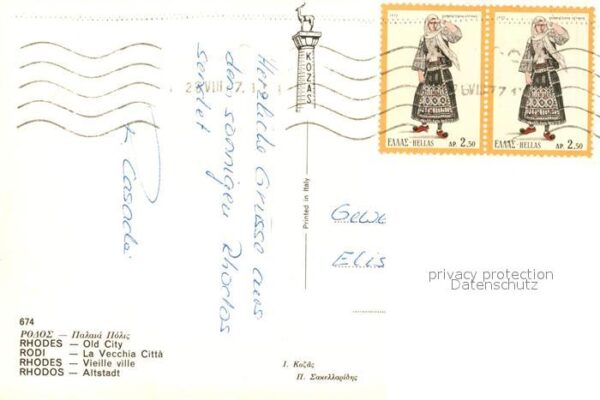 Herzliche Grüsse aus
dem sonnigen Rhodos
sendet
R. Casadei
KOZAS
ΕΛΛΑΣ-HELLAS ΔΡ. 2.50
ΕΛΛΑΣ-HELLAS ΔΡ. 2.50
Printed in Italy
Elis
privacy protection
Datenschutz
674
ΡΟΔΟΣ — Παλαιά Πόλις
RHODES — Old City
RODI — La Vecchia Città
RHODES — Vieille ville
RHODOS — Altstadt
Ι. Κοζάς
Π. Σακελλαρίδης